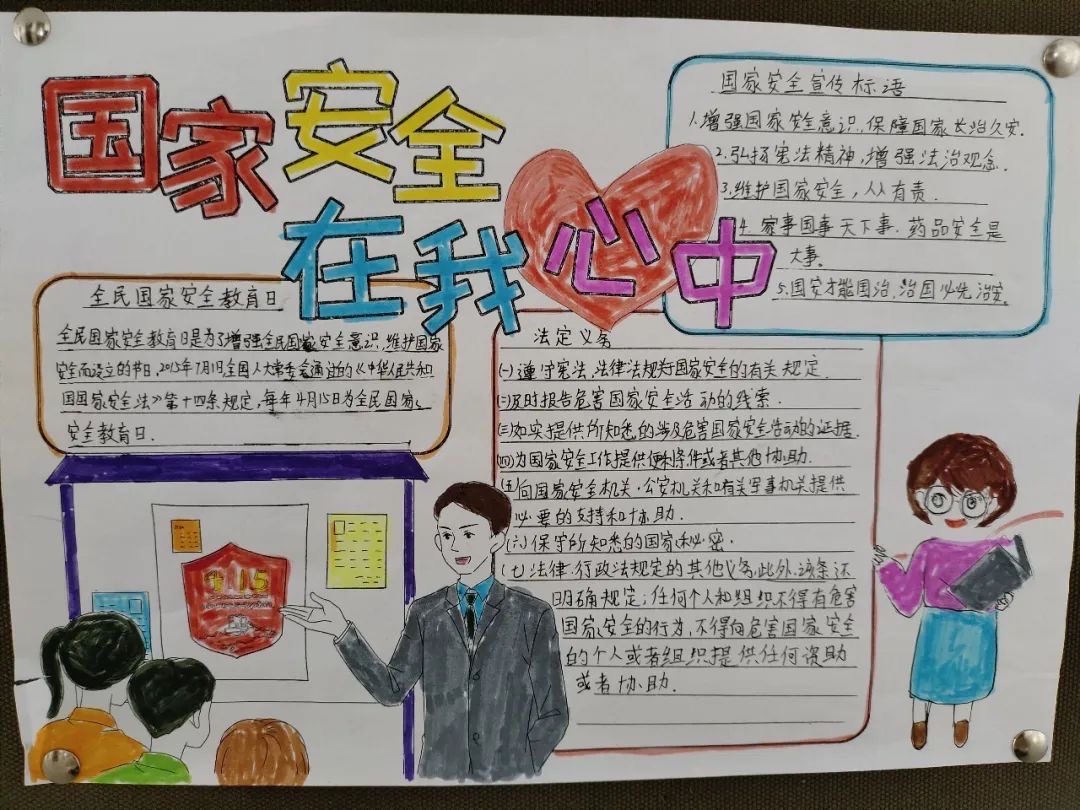 国家安全
在我心中
国家安全宣传标语
1.增强国家安全意识,保障国家长治久安.
2.弘扬宪法精神,增强法治观念.
3.维护国家安全,人人有责.
4.家事国事天下事.药品安全是
大事。
5.国安才能国治,治国必先治安.
全民国家安全教育日
全民国家安全教育日是为了增强全民国家安全意识,维护国家
安全而设立的节日.2015年7月1日全国人大常委会通过的《中华人民共和
国国家安全法》第十四条规定,每年4月15日为全民国家
安全教育日.
法定义务
(一)遵守宪法、法律法规关于国家安全的有关规定.
(二)及时报告危害国家安全活动的线索.
(三)如实提供所知悉的涉及危害国家安全活动的证据.
(四)为国家安全工作提供便利条件或者其他协助.
(五)向国家安全机关、公安机关和有关军事机关提供
必要的支持和协助.
(六)保守所知悉的国家秘密.
(七)法律、行政法规定的其他义务.此外,该条还
明确规定:任何个人和组织不得有危害
国家安全的行为,不得向危害国家安全
的个人或者组织提供任何资助
或者协助.
4 15